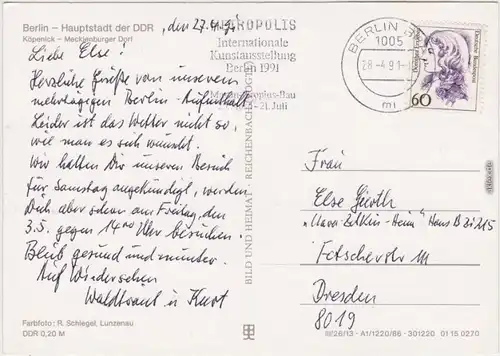 Berlin – Hauptstadt der DDR
Köpenick – Mecklenburger Dorf
, den 27.4.91
Liebe Else!
Herzliche Grüße von unserem
mehrtägigen Berlin-Aufenthalt.
Leider ist das Wetter nicht so,
wie man es sich wünscht.
Wir hatten Dir unseren Besuch
für Samstag angekündigt, werden
Dich aber schon am Freitag, den
3.5. gegen 14⁰⁰ Uhr besuchen.
Bleib gesund und munter.
Auf Wiedersehen
Waldtraut u Kurt
Farbfoto: R. Schlegel, Lunzenau
DDR 0,20 M
BILD UND HEIMAT REICHENBACH
METROPOLIS
Internationale
Kunstausstellung
Berlin 1991
Martin-Gropius-Bau
21. Juli
BERLIN
1005
28-4.91
mi
Deutsche Bundespost
60
Frau
Else
"Clara-Zetkin-Heim" Haus B Zi 215
Fetscherstr 111
Dresden
8019
III/26/13 - A1/1220/86 - 301220 01 15 0270